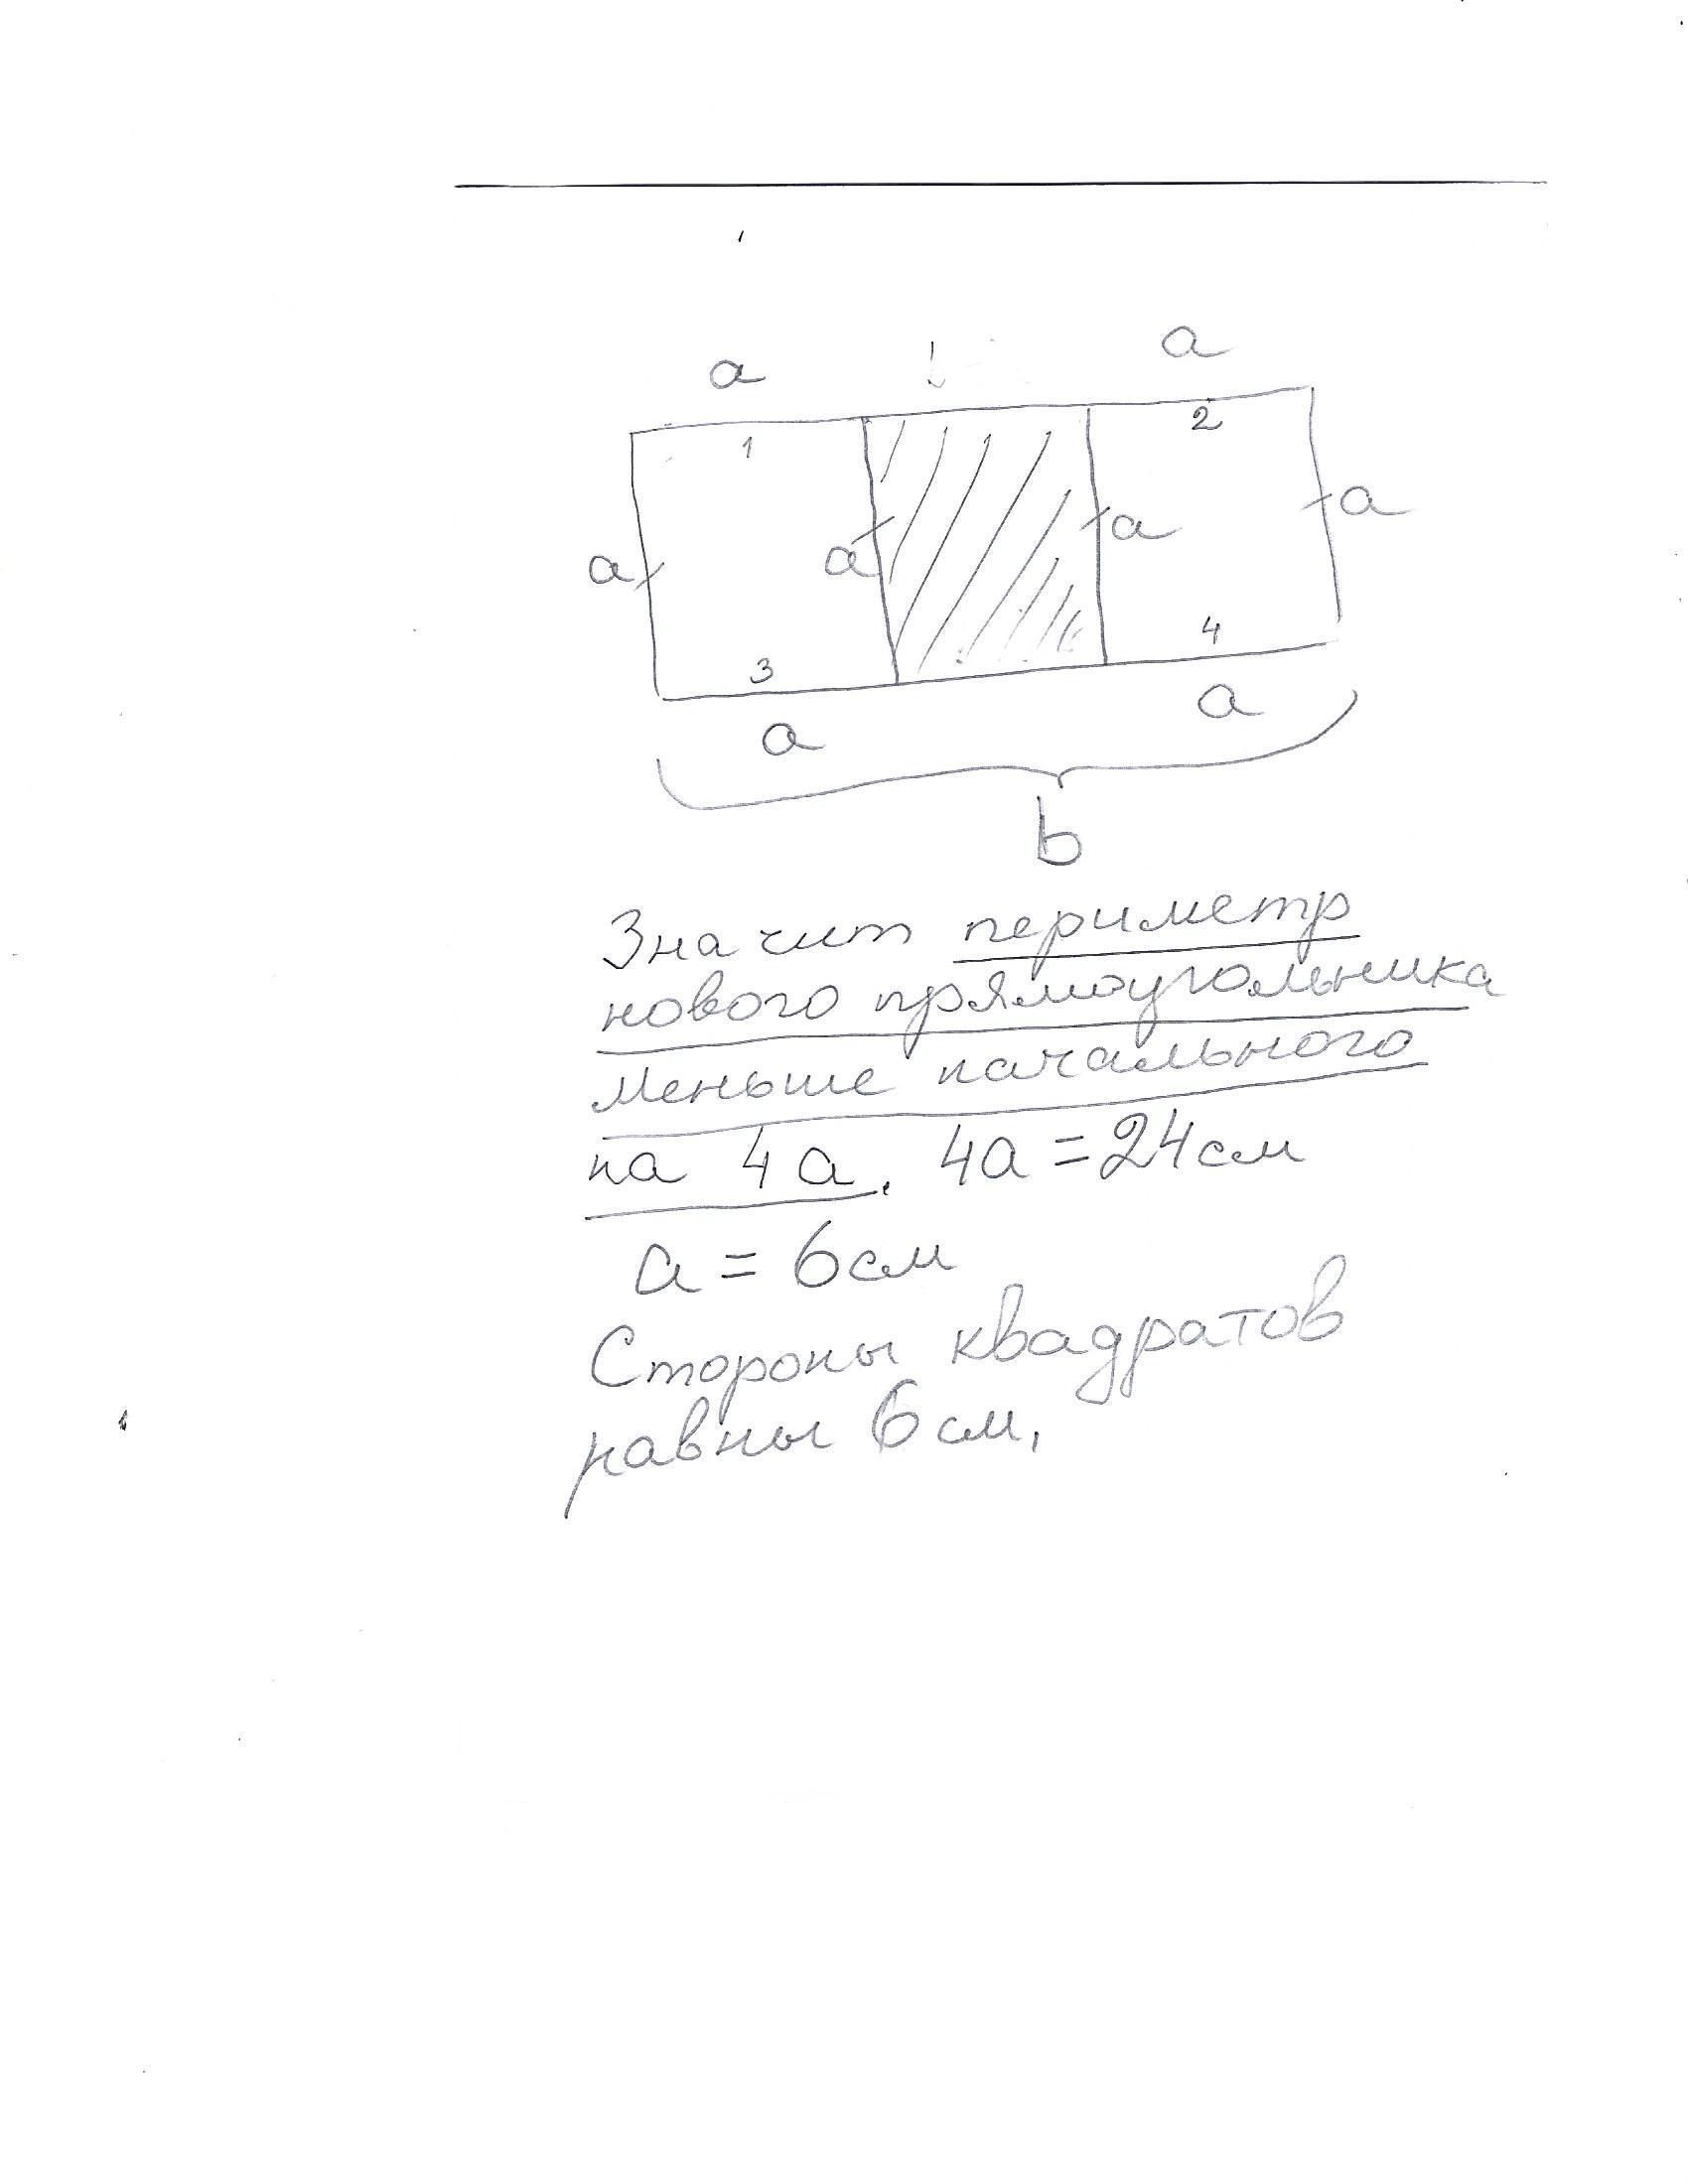 a a
1 2
a a a a
3 4
a a
b
Значит периметр
нового прямоугольника
меньше начального
на 4a. 4a = 24см
a = 6см
Стороны квадратов
равны 6см.